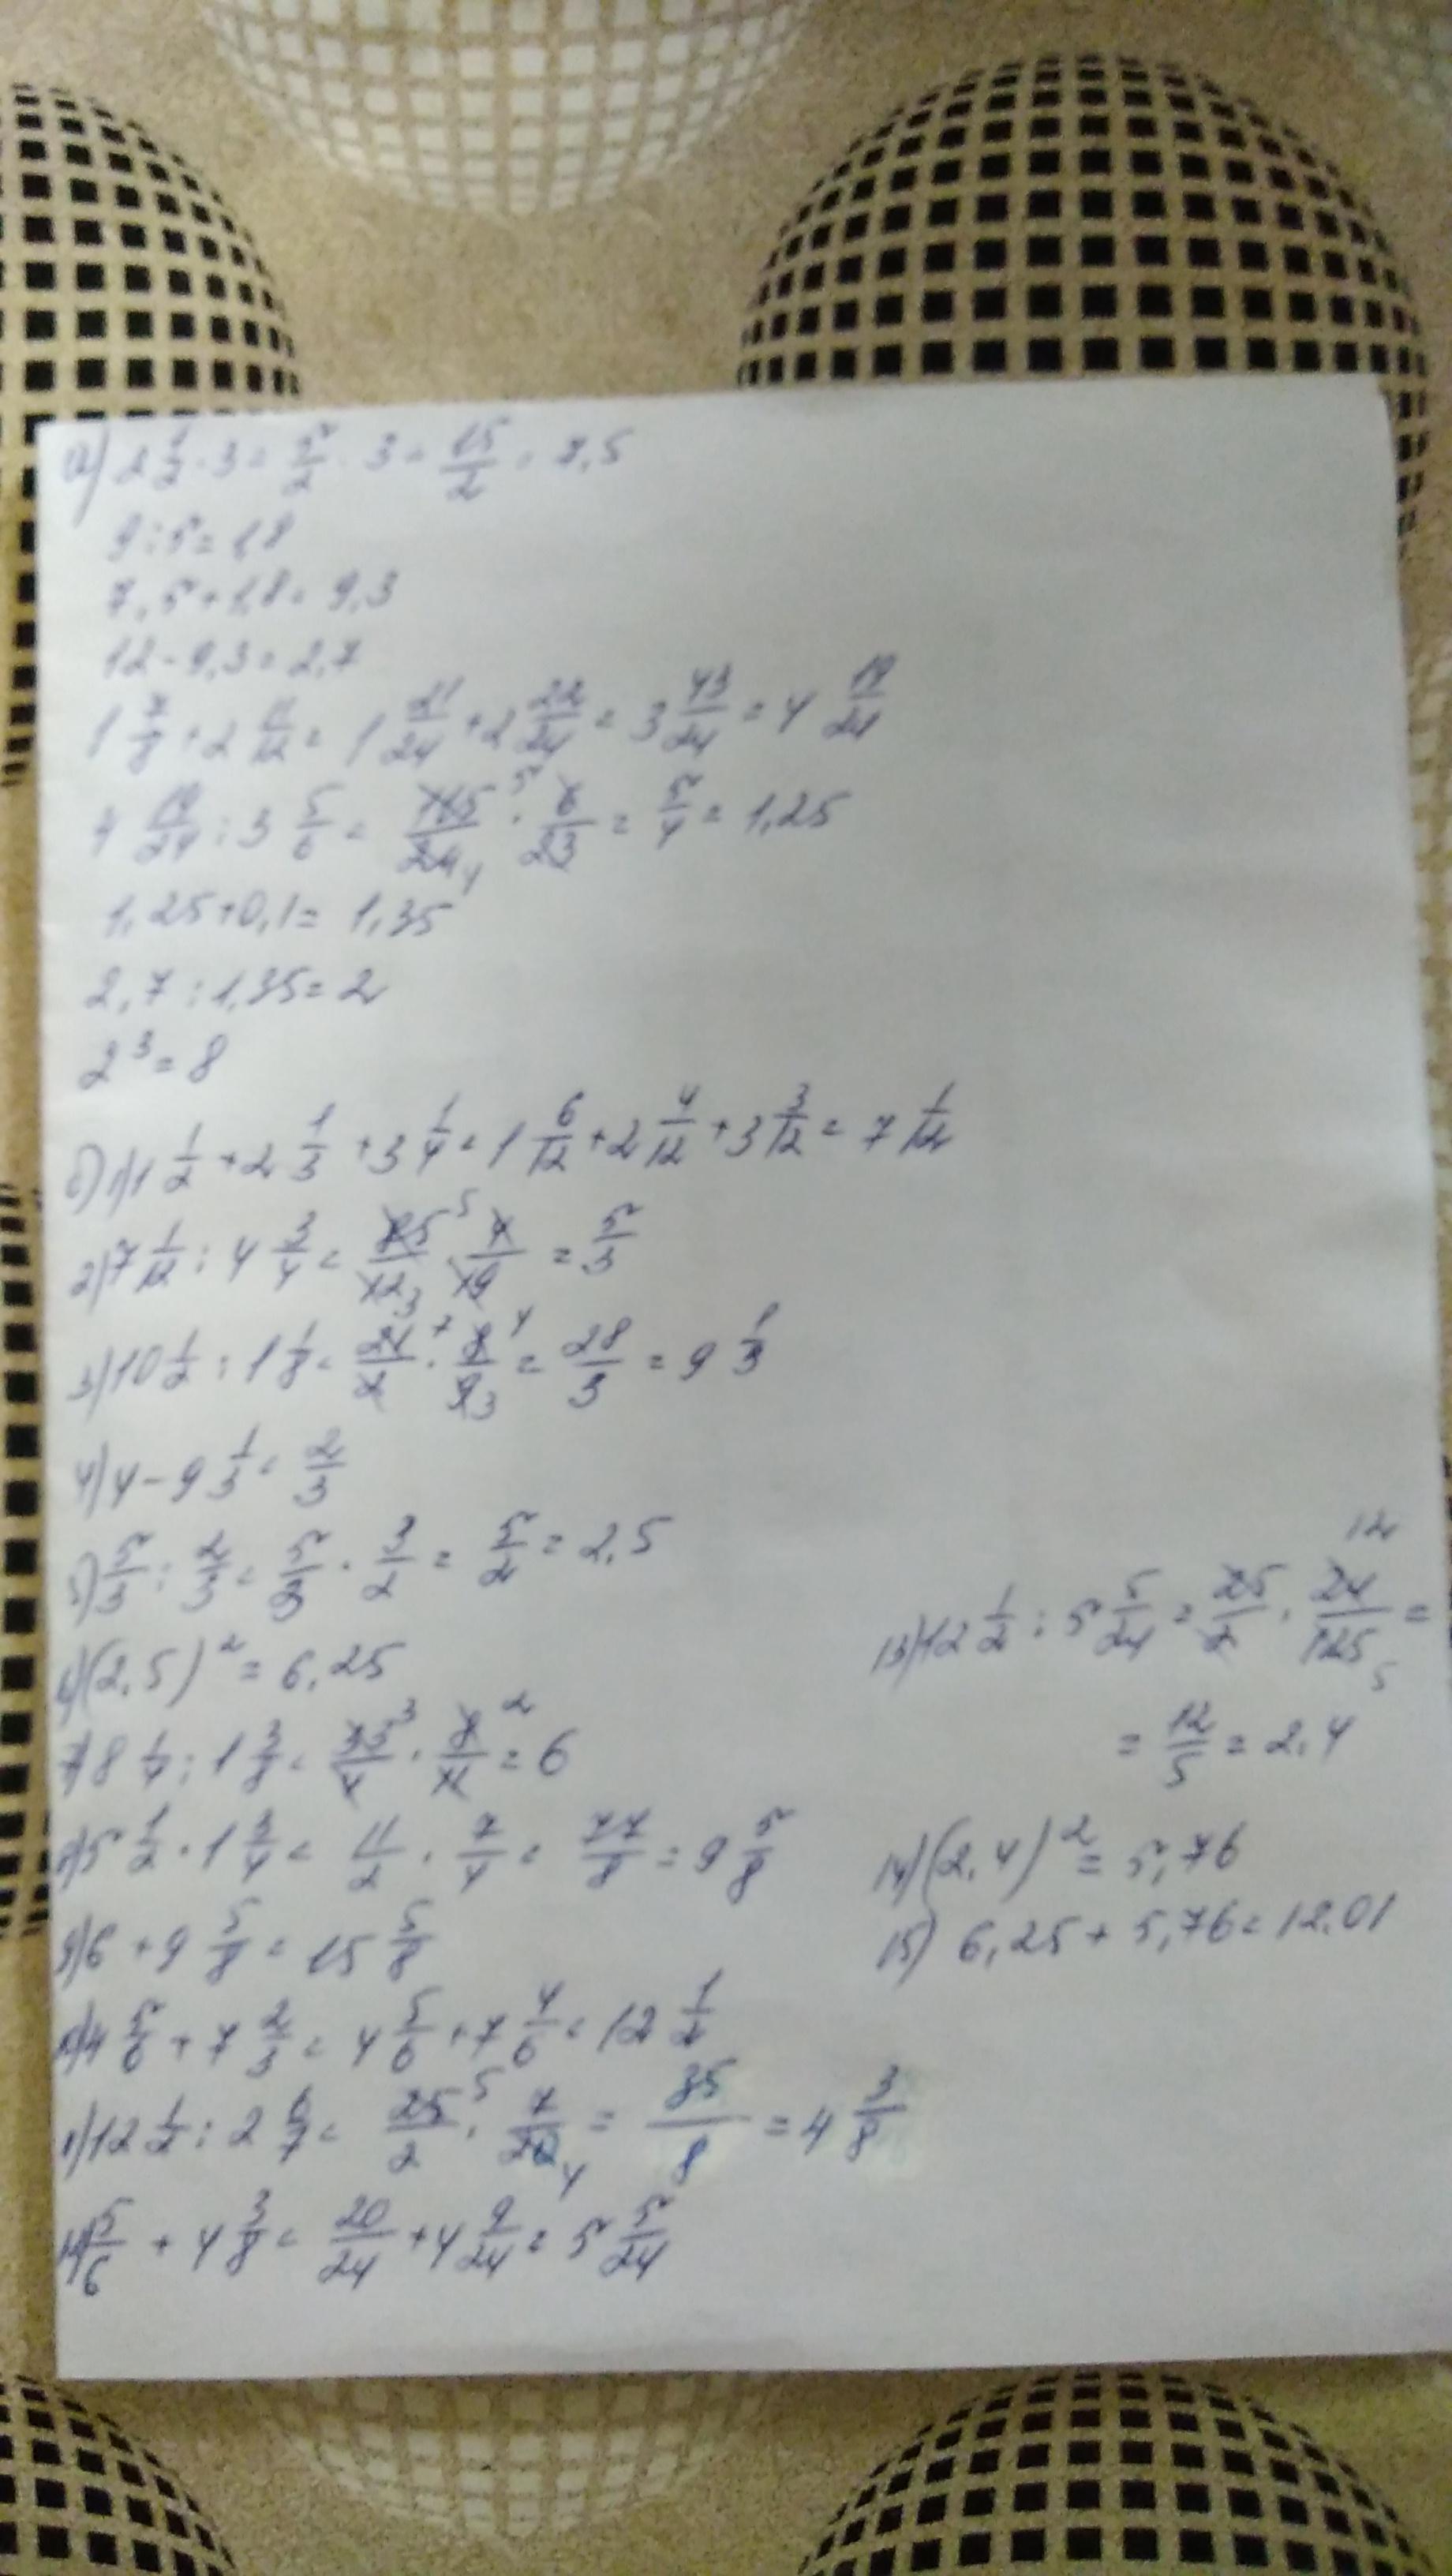 а) 2 1/2 · 3 = 5/2 · 3 = 15/2 = 7,5
9 : 5 = 1,8
7,5 + 1,8 = 9,3
12 - 9,3 = 2,7
1 7/8 + 2 11/12 = 1 21/24 + 2 22/24 = 3 43/24 = 4 19/24
4 19/24 : 3 5/6 = 115/24 4 · 5 6/23 = 5/4 = 1,25
1,25 + 0,1 = 1,35
2,7 : 1,35 = 2
2³ = 8
б) 1) 1 1/2 + 2 1/3 + 3 1/4 = 1 6/12 + 2 4/12 + 3 3/12 = 7 1/12
2) 7 1/12 : 4 3/4 = 85/12 3 · 5 4/19 = 5/3
3) 10 1/2 : 1 1/8 = 21/2 7 · 8/9 4 3 = 28/3 = 9 1/3
4) 4 - 9 1/3 = 2/3
5) 5/3 : 2/3 = 5/3 · 3/2 = 5/2 = 2,5
6) (2,5)² = 6,25
7) 8 1/4 : 1 3/8 = 33/4 3 · 8/11 2 = 6
8) 5 1/2 · 1 3/4 = 11/2 · 7/4 = 77/8 = 9 5/8
9) 6 + 9 5/8 = 15 5/8
10) 4 5/6 + 7 2/3 = 4 5/6 + 7 4/6 = 12 1/2
11) 12 1/2 : 2 6/7 = 25/2 5 · 7/20 4 = 35/8 = 4 3/8
12) 5/6 + 4 3/8 = 20/24 + 4 9/24 = 5 5/24
13) 12 1/2 : 5 5/24 = 25/2 · 24/125 12 5 =
= 12/5 = 2,4
14) (2,4)² = 5,76
15) 6,25 + 5,76 = 12,01